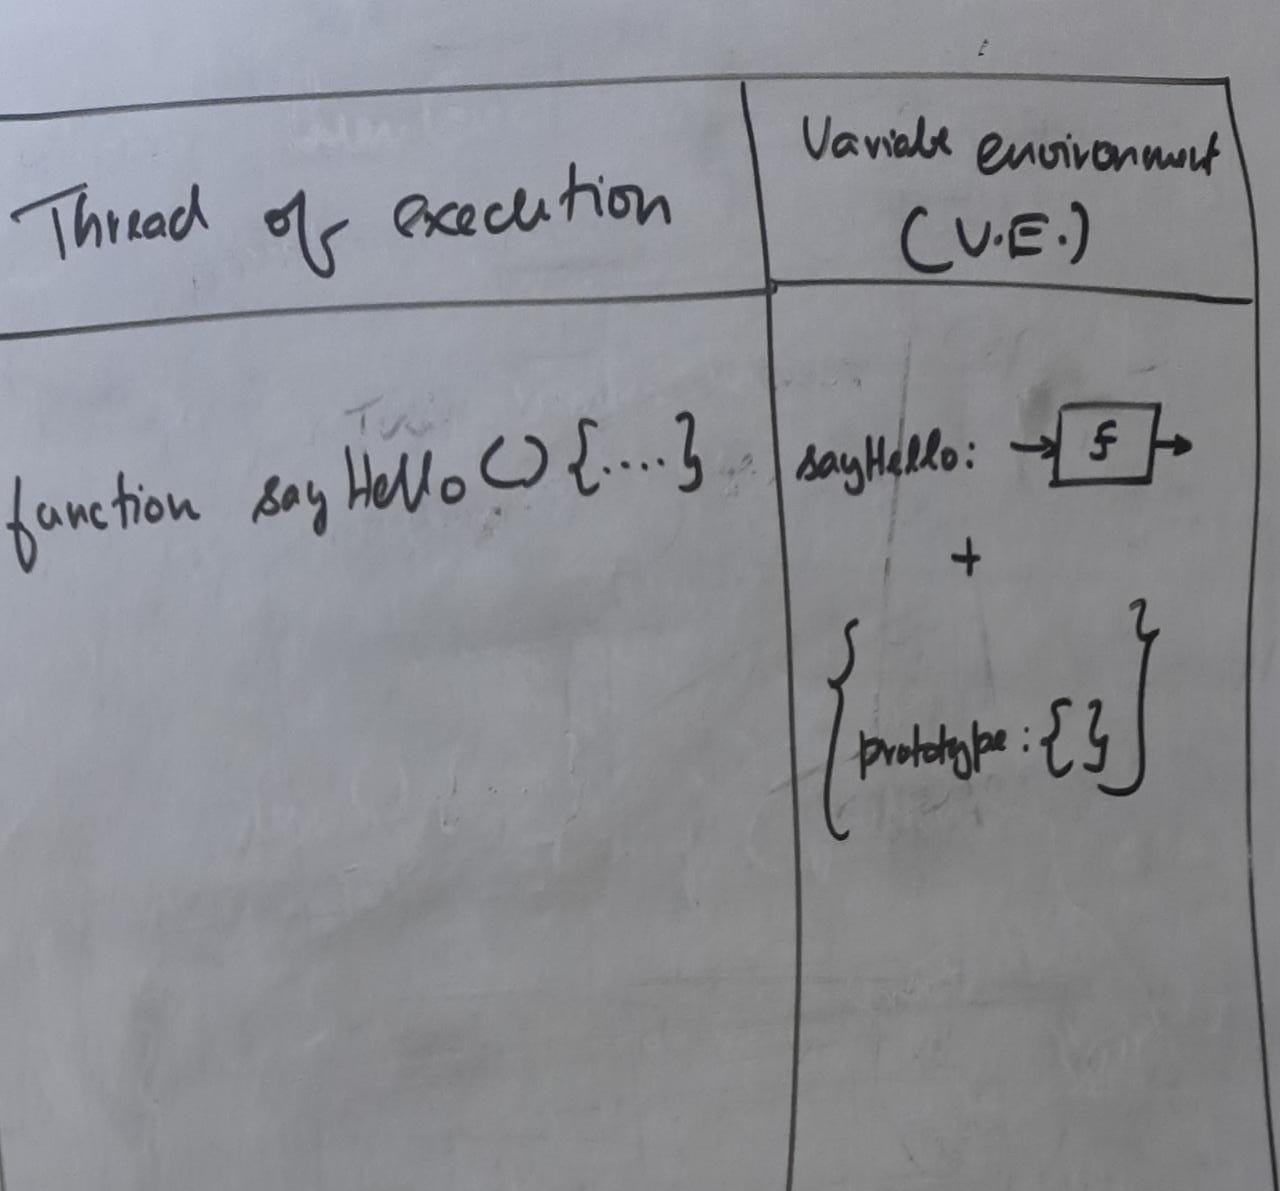 Thread of execution
Variable environment
(V.E.)
function sayHello() {....}
sayHello: → f →
+
{
prototype: {}
}